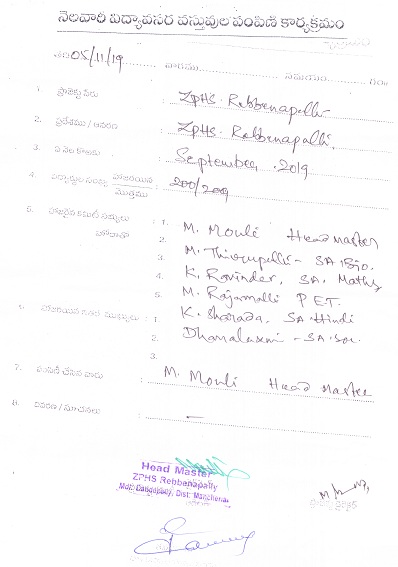 నెలవారి విద్యావసర వస్తువుల పంపిణి కార్యక్రమం
05/11/19 వారము సమయం
1. ప్రాజెక్టు పేరు : ZPHS Rebbenapalli
2. ప్రదేశము / ఆవరణ : ZPHS Rebbenapalli.
3. ఏ నెల కొరకు : September, 2019
4. విద్యార్థుల సంఖ్య హాజరయిన / మొత్తము : 200/209
5. హాజరైన కమిటీ సభ్యులు : 1. M. Mouli Head Master
హోదాతో 2. M. Thirupathi - SA. Bio.
3. K. Ravinder, SA. Maths
4. M. Rajamalli P ET.
5. K. Sharada, SA. Hindi
1. Dhanalaxmi - SA. Soc.
2.
3.
7. పంపిణి చేసిన వారు : M. Mouli Head Master
8. వివరణ / సూచనలు : —
Head Master
ZPHS Rebbenapally
Mdl: Dandepally, Dist: Mancherial